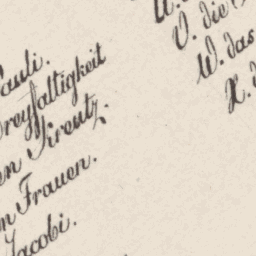 Pauli.
Dreyfaltigkeit
en Kreutz.
n Frauen.
Jacobi.
U.
V. die
W. das
X. d